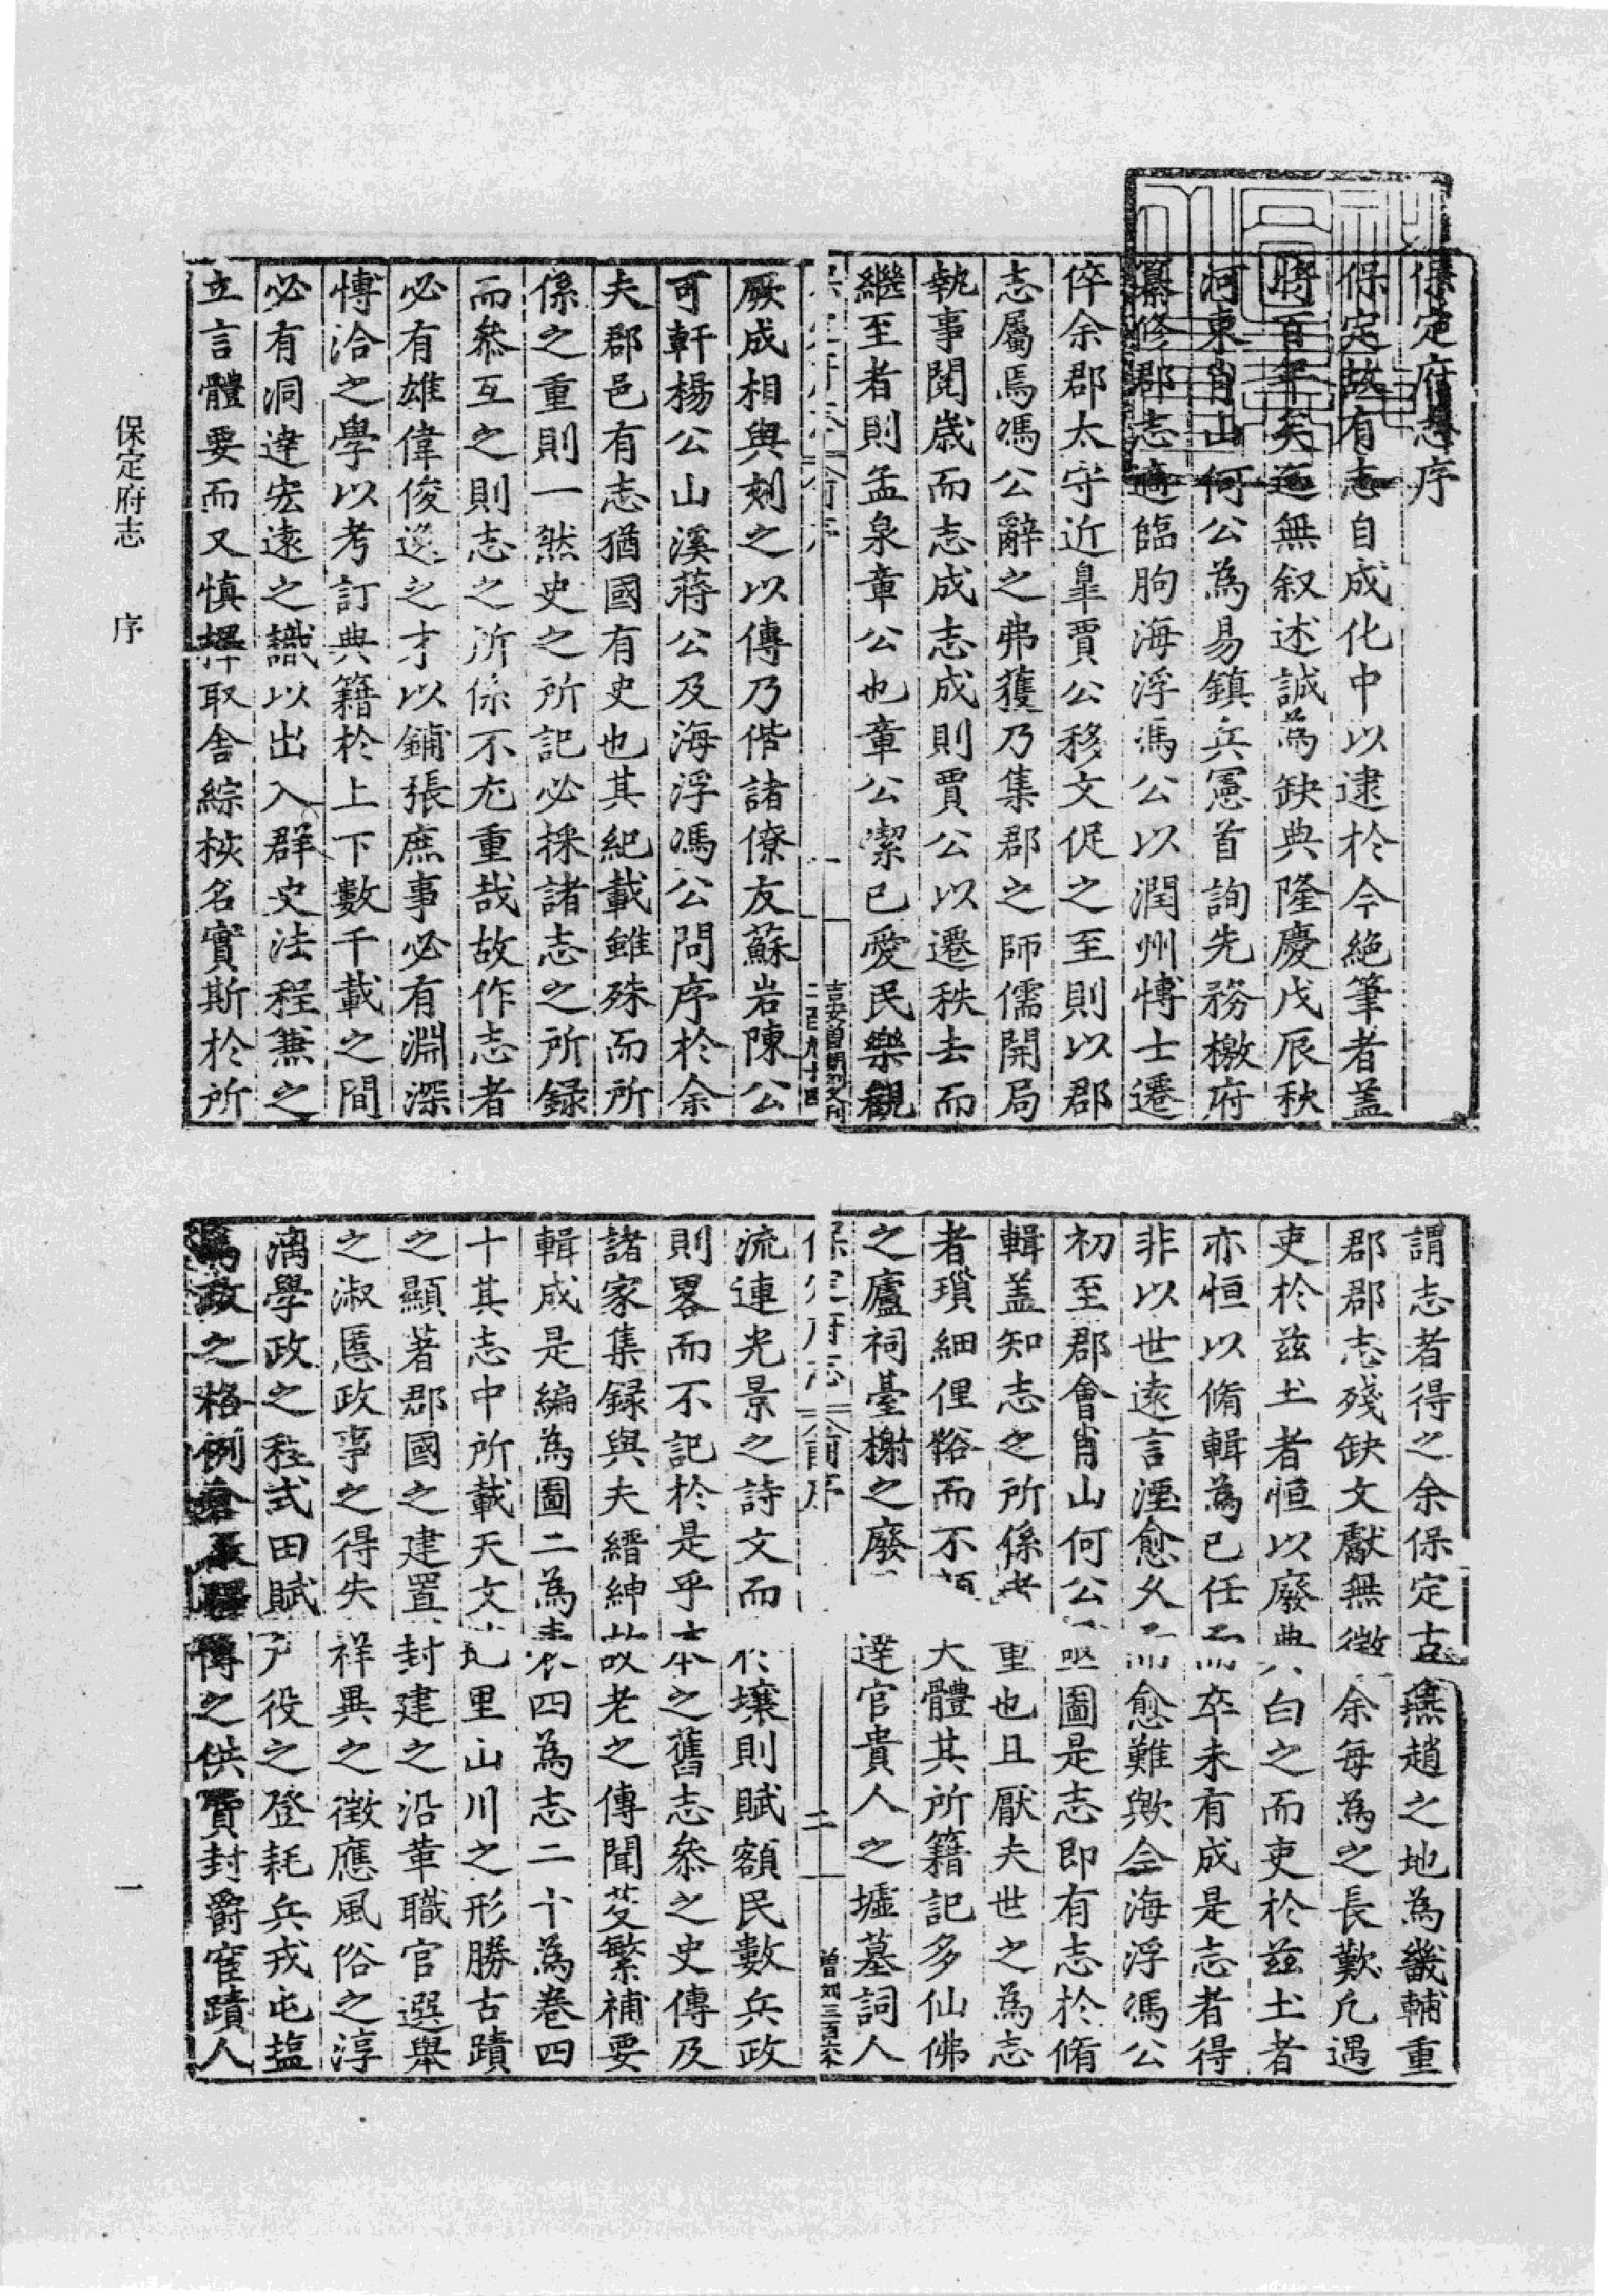 保定府志序
保定故有志自成化中以逮於今絶筆者盖
將百年矣迄無叙述誠為缺典隆慶戊辰秋
河東肖山何公為易鎮兵憲首詢先務檄府
纂修郡志適臨朐海浮馮公以潤州博士遷
倅余郡太守近臯賈公移文促之至則以郡
志屬焉馮公辭之弗獲乃集郡之師儒開局
執事閲歳而志成志成則賈公以遷秩去而
繼至者則孟泉章公也章公潔已愛民樂觀
保定府志 前序 一
厥成相與刻之以傳乃偕諸僚友蘇岩陳公
可軒楊公山溪蔣公及海浮馮公問序於余
夫郡邑有志猶國有史也其紀載雖殊而所
係之重則一然史之所記必採諸志之所録
而叅互之則志之所係不尤重哉故作志者
必有雄偉俊逸之才以鋪張庶事必有淵深
博洽之學以考訂典籍於上下數千載之間
必有洞達宏遠之識以出入群史法程兼之
立言體要而又慎擇取舎綜核名實斯於所
謂志者得之余保定古燕趙之地為畿輔重
郡郡志殘缺文獻無徵余每為之長歎凢遇
吏於兹土者恒以廢典白之而吏於兹土者
亦恒以脩輯為已任而卒未有成是志者得
非以世遠言湮愈乆而愈難歟今海浮馮公
初至郡會肖山何公亟圖是志即有志於脩
輯盖知志之所係者重也且厭夫世之為志
者瑣細俚俗而不領大體其所籍記多仙佛
之廬祠臺榭之廢 達官貴人之墟墓詞人
保定府志 前序 二 曽刘三百六十
流連光景之詩文而於壤則賦額民數兵政
則畧而不記於是乎本之舊志叅之史傳及
諸家集録與夫縉紳故老之傳聞芟繁補要
輯成是編為圖二為表四為志二十為巻四
十其志中所載天文 里山川之形勝古蹟
之顯著郡國之建置封建之沿革職官選舉
之淑慝政事之得失祥異之徵應風俗之淳
漓學政之程式田賦戸役之登耗兵戎屯塩
為政之格例 傳之供 封爵宦蹟人
保定府志 序 一